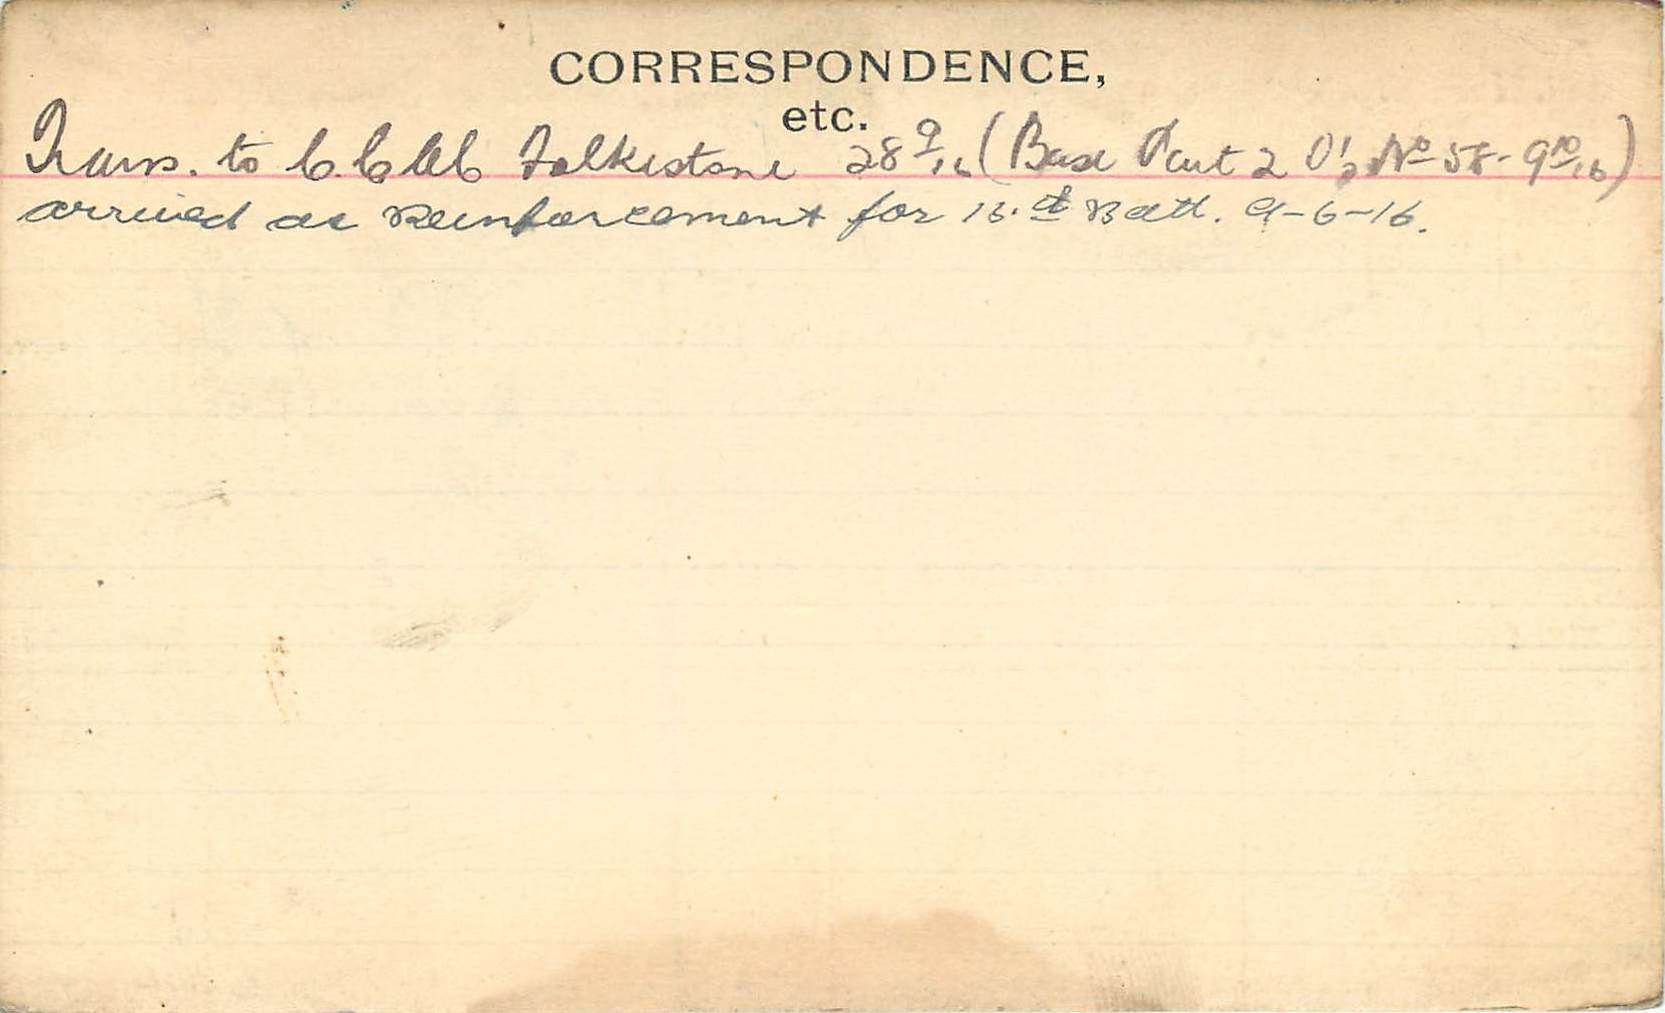 CORRESPONDENCE,
etc.
Trans. to C.C.A.C Folkestone 28 9/16 (Base Part 2 O's No 58 - 9 10/16)
arrived as Reinforcement for Batt. 9-6-16.